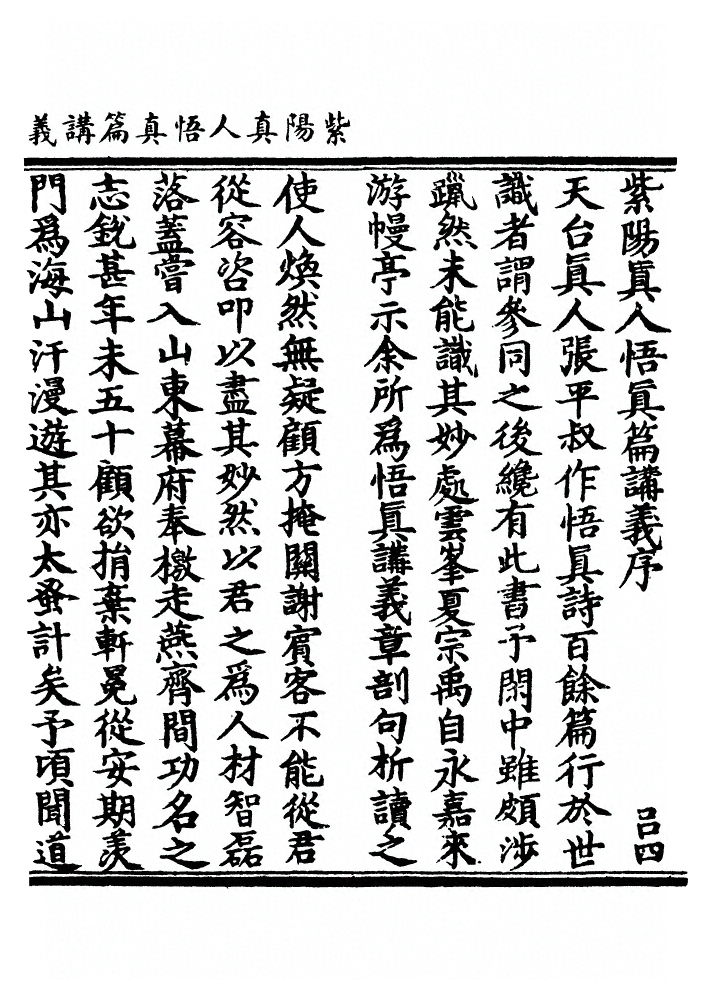 紫陽真人悟真篇講義
紫陽眞人悟眞篇講義序 呂四
天台眞人張平叔作悟眞詩百餘篇行於世
識者謂參同之後纔有此書予閑中雖頗涉
躐然未能識其妙處雲峯夏宗禹自永嘉來
游幔亭示余所爲悟眞講義章剖句析讀之
使人煥然無疑顧方掩關謝賓客不能從君
從容咨叩以盡其妙然以君之爲人材智磊
落蓋嘗入山東幕府奉檄走燕齊間功名之
志銳甚年未五十顧欲捐棄軒冕從安期羡
門爲海山汗漫遊其亦太蚤計矣予頃聞道